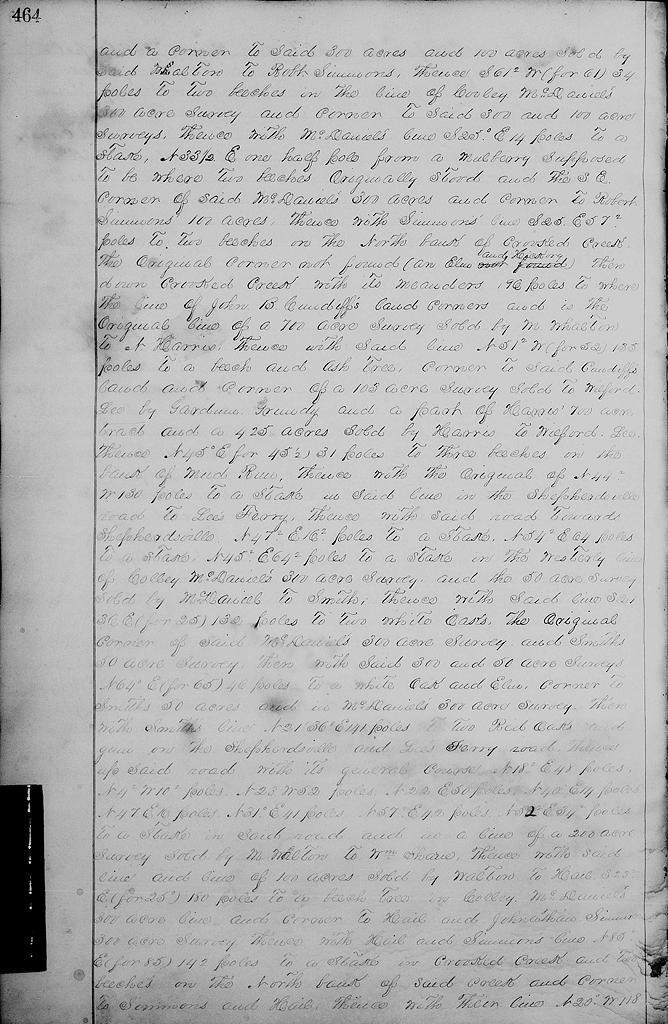 464
and a corner to said 300 acres and 100 acres sold by
said Walton to Robt Simmons, thence S61° W (for 61) 34
poles to two beeches in the line of Cooley McDaniel's
300 acre survey and corner to said 300 and 100 acre
surveys, thence with McDaniel's line S25° E 14 poles to a
stake, N33½ E one half pole from a mulberry supposed
to be where two beeches originally stood and the S.E.
corner of said McDaniel's 300 acres and corner to Robert
Simmons' 100 acres, thence with Simmons' line S25 E 57
poles to two beeches on the North bank of Crooked Creek.
The original corner not found (an Elm and Hickory not found) then
down Crooked Creek with its meanders poles to where
the line of John B. Cundiff's land corners and in the
original line of a 700 acre survey sold by M. Whalton
to N Harris, thence with said line N51° W (for 52) 135
poles to a beech and ash tree, corner to said Cundiff's
land and corner of a 103 acre survey sold to Wilford
Lee by Gardner Grundy and a part of Harris' 700 acre
tract and a 425 acres sold by Harris to Wilford Lee,
thence N45° E (for 45½) 31 poles to three beeches on the
bank of Mud Run, thence with the original of N44°
W 130 poles to a stake in said line in the Shepherdsville
road to Lee's Ferry, thence with said road towards
Shepherdsville N47° E 16 poles to a stake, N54° E 64 poles
to a stake, N45° E 64 poles to a stake in the Westerly line
of Colley McDaniel's 300 acre survey, and the 50 acre survey
sold by McDaniel to Smith, thence with said line
36 E (for 25) 132 poles to two white oaks, the original
corner of said McDaniel's 300 acre survey and Smith's
50 acre survey, then with said 300 and 50 acre surveys
N64° E (for 65) 46 poles to a white oak and Elm, corner to
Smith's 50 acres and in McDaniel's 300 acre survey, then
with Smith's line N21° 36' E 141 poles to two Red Oaks and
gum on the Shepherdsville and Lee's Ferry road, thence
up said road with its general course N18° E 48 poles,
N4° W 10 poles, N23 W 52 poles, N22 E 50 poles, N40 E 14 poles
N47 E 16 poles, N31° E 41 poles, N57° E 42 poles, N52 E 34 poles
to a stake in said road and in a line of a 200 acre
survey sold by M. Walton to Wm Share, thence with said
line and line of 100 acres sold by Walton to Hail S25°
E (for 25°) 180 poles to a beech tree in Colley McDaniel's
300 acre line and corner to Hail and Johnathan Simmons
300 acre survey thence with Hail and Simmons line N85°
E (for 85) 142 poles to a stake in Crooked Creek and two
beeches on the North bank of said creek and corner
to Simmons and Hail, thence with their line N20° W 118